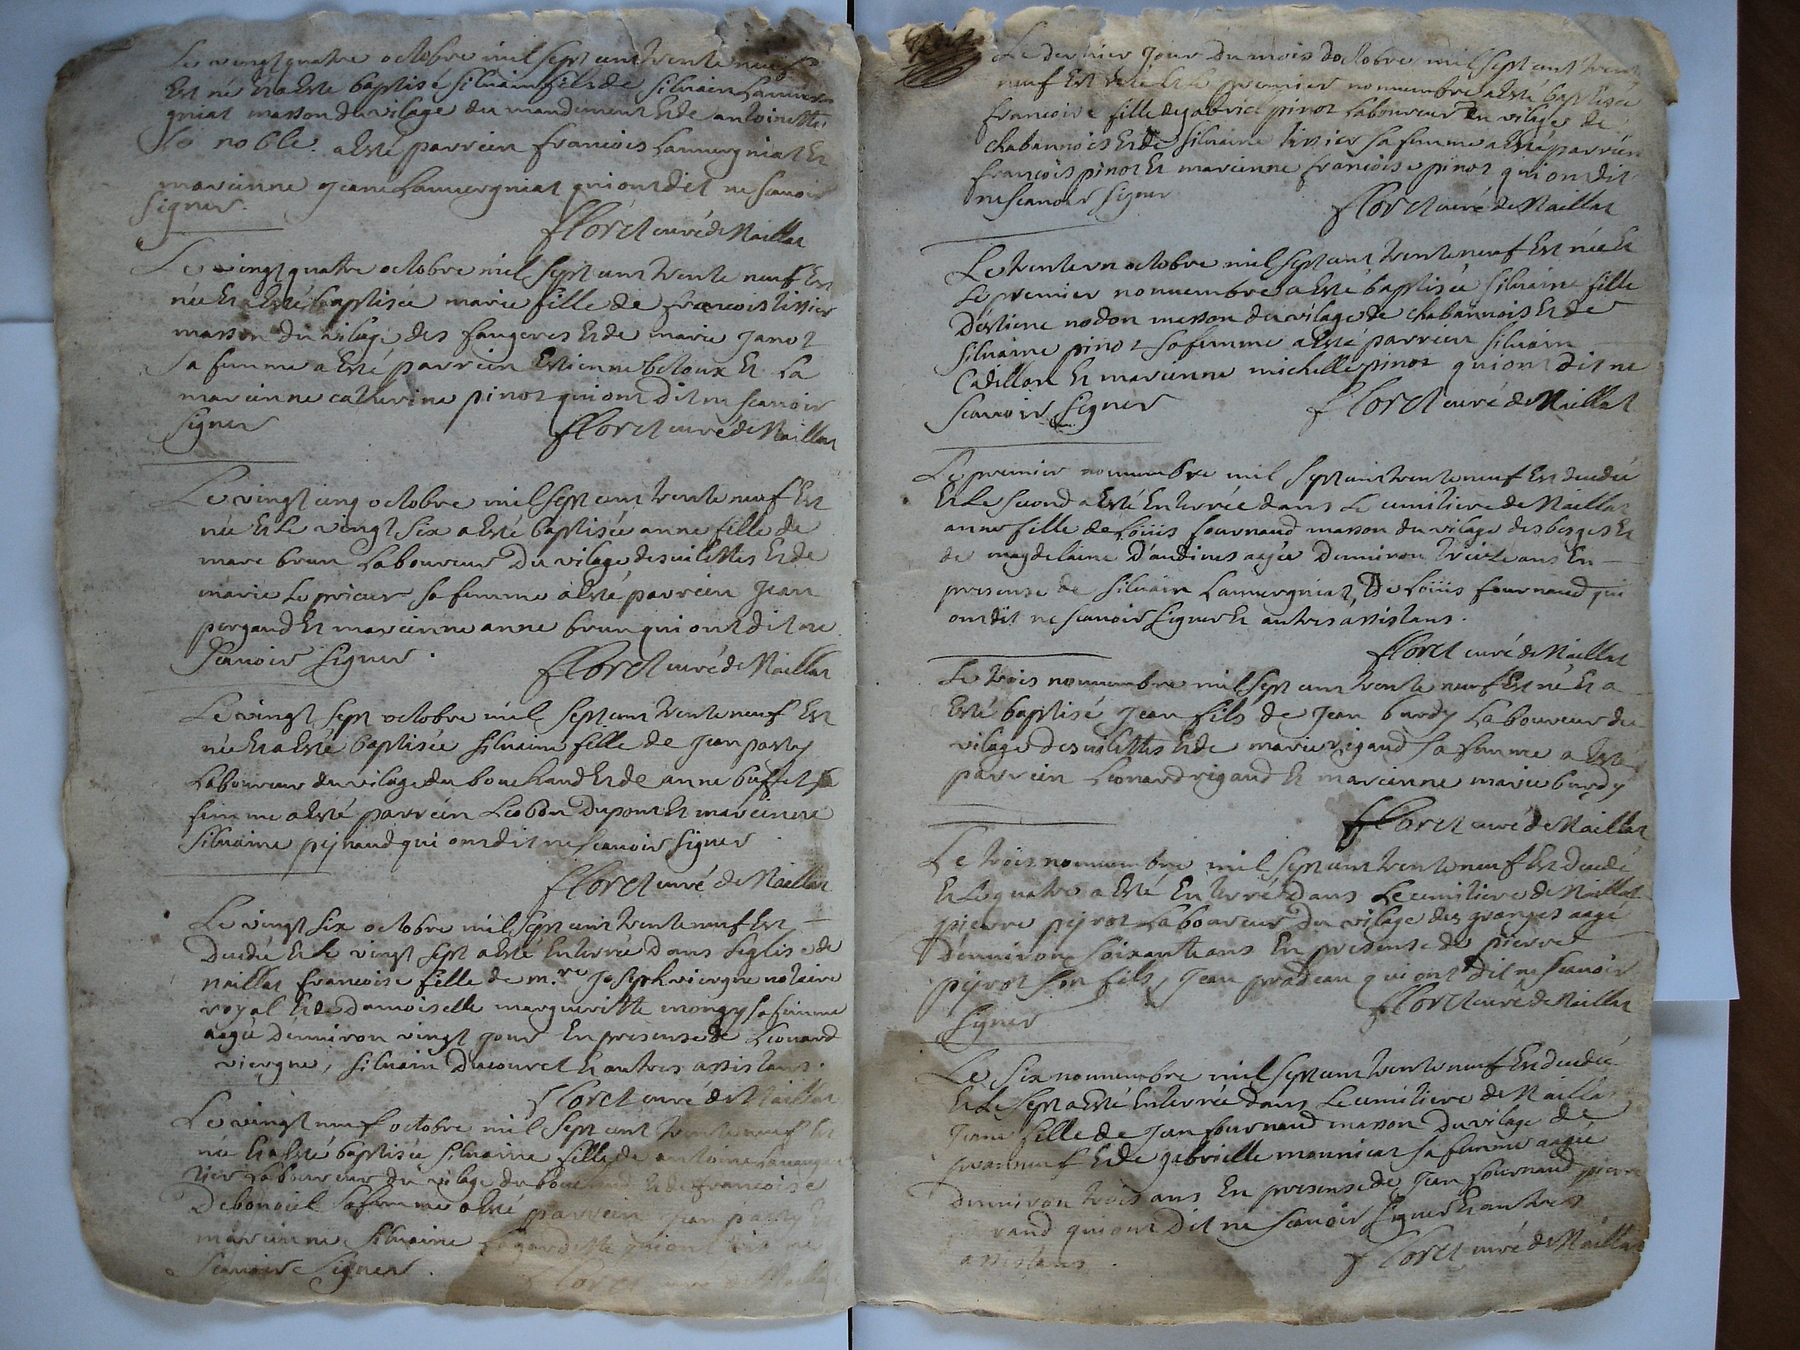 Le vingt quatre octobre mil sept cent trente neuf
Est né et a Esté baptisé silvain fils de silvain Lauver
gniat masson du vilage du mandement et de antoinette
noble. a Esté parrein francois Lauvergniat et
mareinne jeane Lauvergniat qui ont dit ne scavoir
signer.
floret curé de Naillat
Le vingt quatre octobre mil sept cent trente neuf Est
née et a Esté baptisée marie fille de francois tixier
masson du vilage des faugeres et de marie janot
sa femme a Esté parrein Estienne betoux et La
mareinne catherine pinot qui ont dit ne scavoir
signer
floret curé de Naillat
Le vingt cinq octobre mil sept cent trente neuf Est
née et Le vingt six a Esté baptisée anne fille de
marc brun Laboureur Du vilage des vilettes et de
marie Le prieur sa femme a Esté parrein jean
pergaud et mareinne anne brun qui ont dit ne
scavoir signer.
floret curé de Naillat
Le vingt sept octobre mil sept cent trente neuf Est
née et a Esté baptisée silvaine fille de jean parry
Laboureur du vilage du bouchaud et de anne buffet sa
femme a Esté parrein Leobon Dupont et mareinne
silvaine peynaud qui ont dit ne scavoir signer
floret curé de Naillat
Le vingt six octobre mil sept cent trente neuf Est
Decedée et Le vingt sept a Esté Enterrée Dans L'eglise de
naillat francoise fille de m.re joseph viergne notaire
royal et de Damoiselle margueritte mongy sa femme
aagée d'environ vingt jour En presense de Leonard
viergne, silvain Ducouret et autres assistans.
floret curé de Naillat
Le vingt neuf octobre mil sept cent trente neuf Est
née et a Esté baptisée silvaine fille de antoine
Laboureur du vilage du bouchaud et de francoise
Debonoiel sa femme a Esté parrein jean parry
mareinne silvaine Lagardette qui ont dit ne
scavoir signer.
floret curé de Naillat
Le dernier jour du mois d'octobre mil sept cent trente
neuf Est née et Le premier novembre a Esté baptisée
francoise fille de gabriel pinot Laboureur Du vilage de
chabannois et de silvaine tixier sa femme a Esté parrein
francois pinot et mareinne francoise pinot qui ont dit
ne scavoir signer
floret curé de Naillat
Le trente un octobre mil sept cent trente neuf Est née et
Le premier novembre a Esté baptisée silvaine fille
D'estiene nodon masson du vilage de chabannois et de
silvaine pinot sa femme a Esté parrein silvain
Cadillon et mareinne michelle pinot qui ont dit ne
scavoir signer
floret curé de Naillat
Le premier novembre mil sept cent trente neuf Est decedée
et Le second a Esté Enterrée dans Le cimitiere de Naillat
anne fille de Loüis fournaud masson du vilage des besges et
de magdelaine D'audines agée D'environ treize ans En
presense de silvain Lauvergniat, De Loüis fournaud qui
ont dit ne scavoir signer et autres assistans.
floret curé de Naillat
Le trois novembre mil sept cent trente neuf Est né et a
Esté baptisé jean fils de jean burdy Laboureur du
vilage des vilettes et de marie rigaud sa femme a Esté
parrein Leonard rigaud et mareinne marie burdy
floret curé de Naillat
Le trois novembre mil sept cent trente neuf Est Decedé
et Le quatre a Esté Enterré Dans Le cimitiere de Naillat
pierre peyrot Laboureur Du vilage des granges aagé
D'environ soixante ans En presense de pierre
peyrot son fils, jean pradeau qui ont dit ne scavoir
signer
floret curé de Naillat
Le six novembre mil sept cent trente neuf Est decedée
et Le sept a Esté Enterrée dans Le cimitiere de Naillat
jeane fille de jean fournaud masson Du vilage de
et de gabrielle mauniat sa femme aagée
D'environ trois ans En presense de jean fournaud pierre
rand qui ont Dit ne scavoir signer et autres
assistans.
floret curé de Naillat